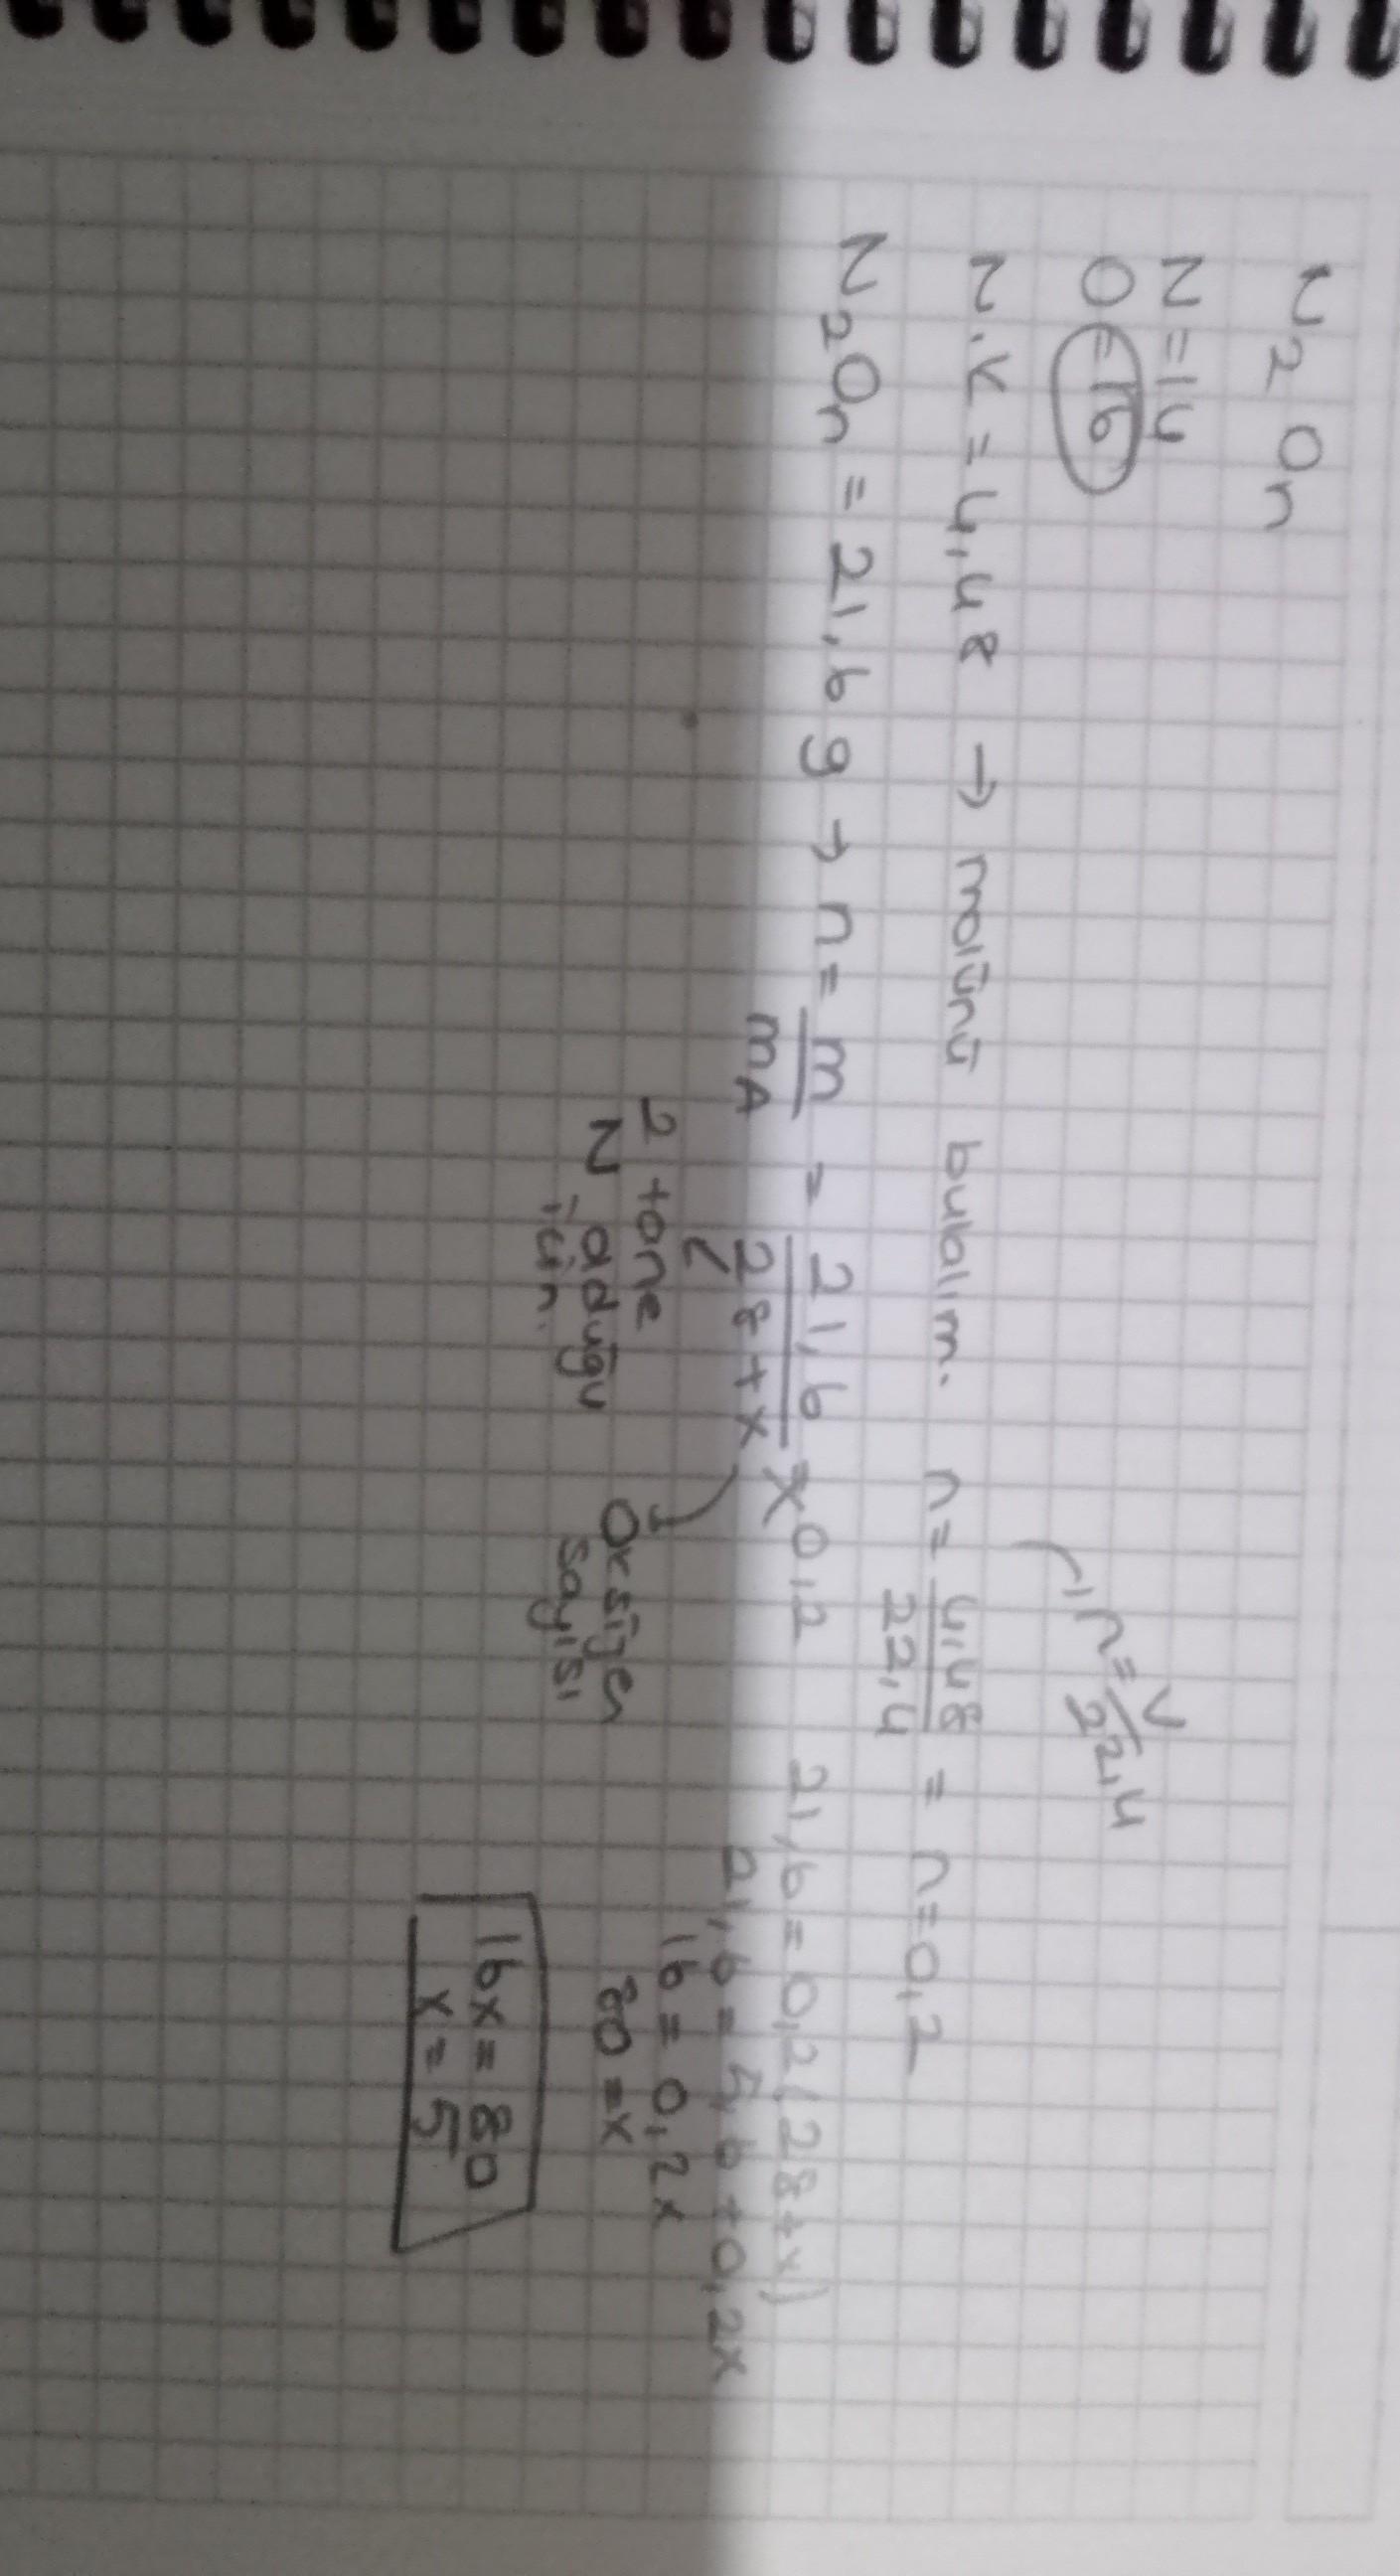 N₂Oₙ
N=14
O=16
n=V/22,4
N.K = 4,48 → molünü bulalım. n = 4,48/22,4 = n=0,2
N₂Oₙ = 21,6 g → n = m/mA = 21,6/28+x = 0,2
21,6 = 0,2(28+x)
21,6 = 5,6+0,2x
16 = 0,2x
80 = x
16x = 80
x = 5
2 tane
N olduğu
için.
Oksijen
sayısı